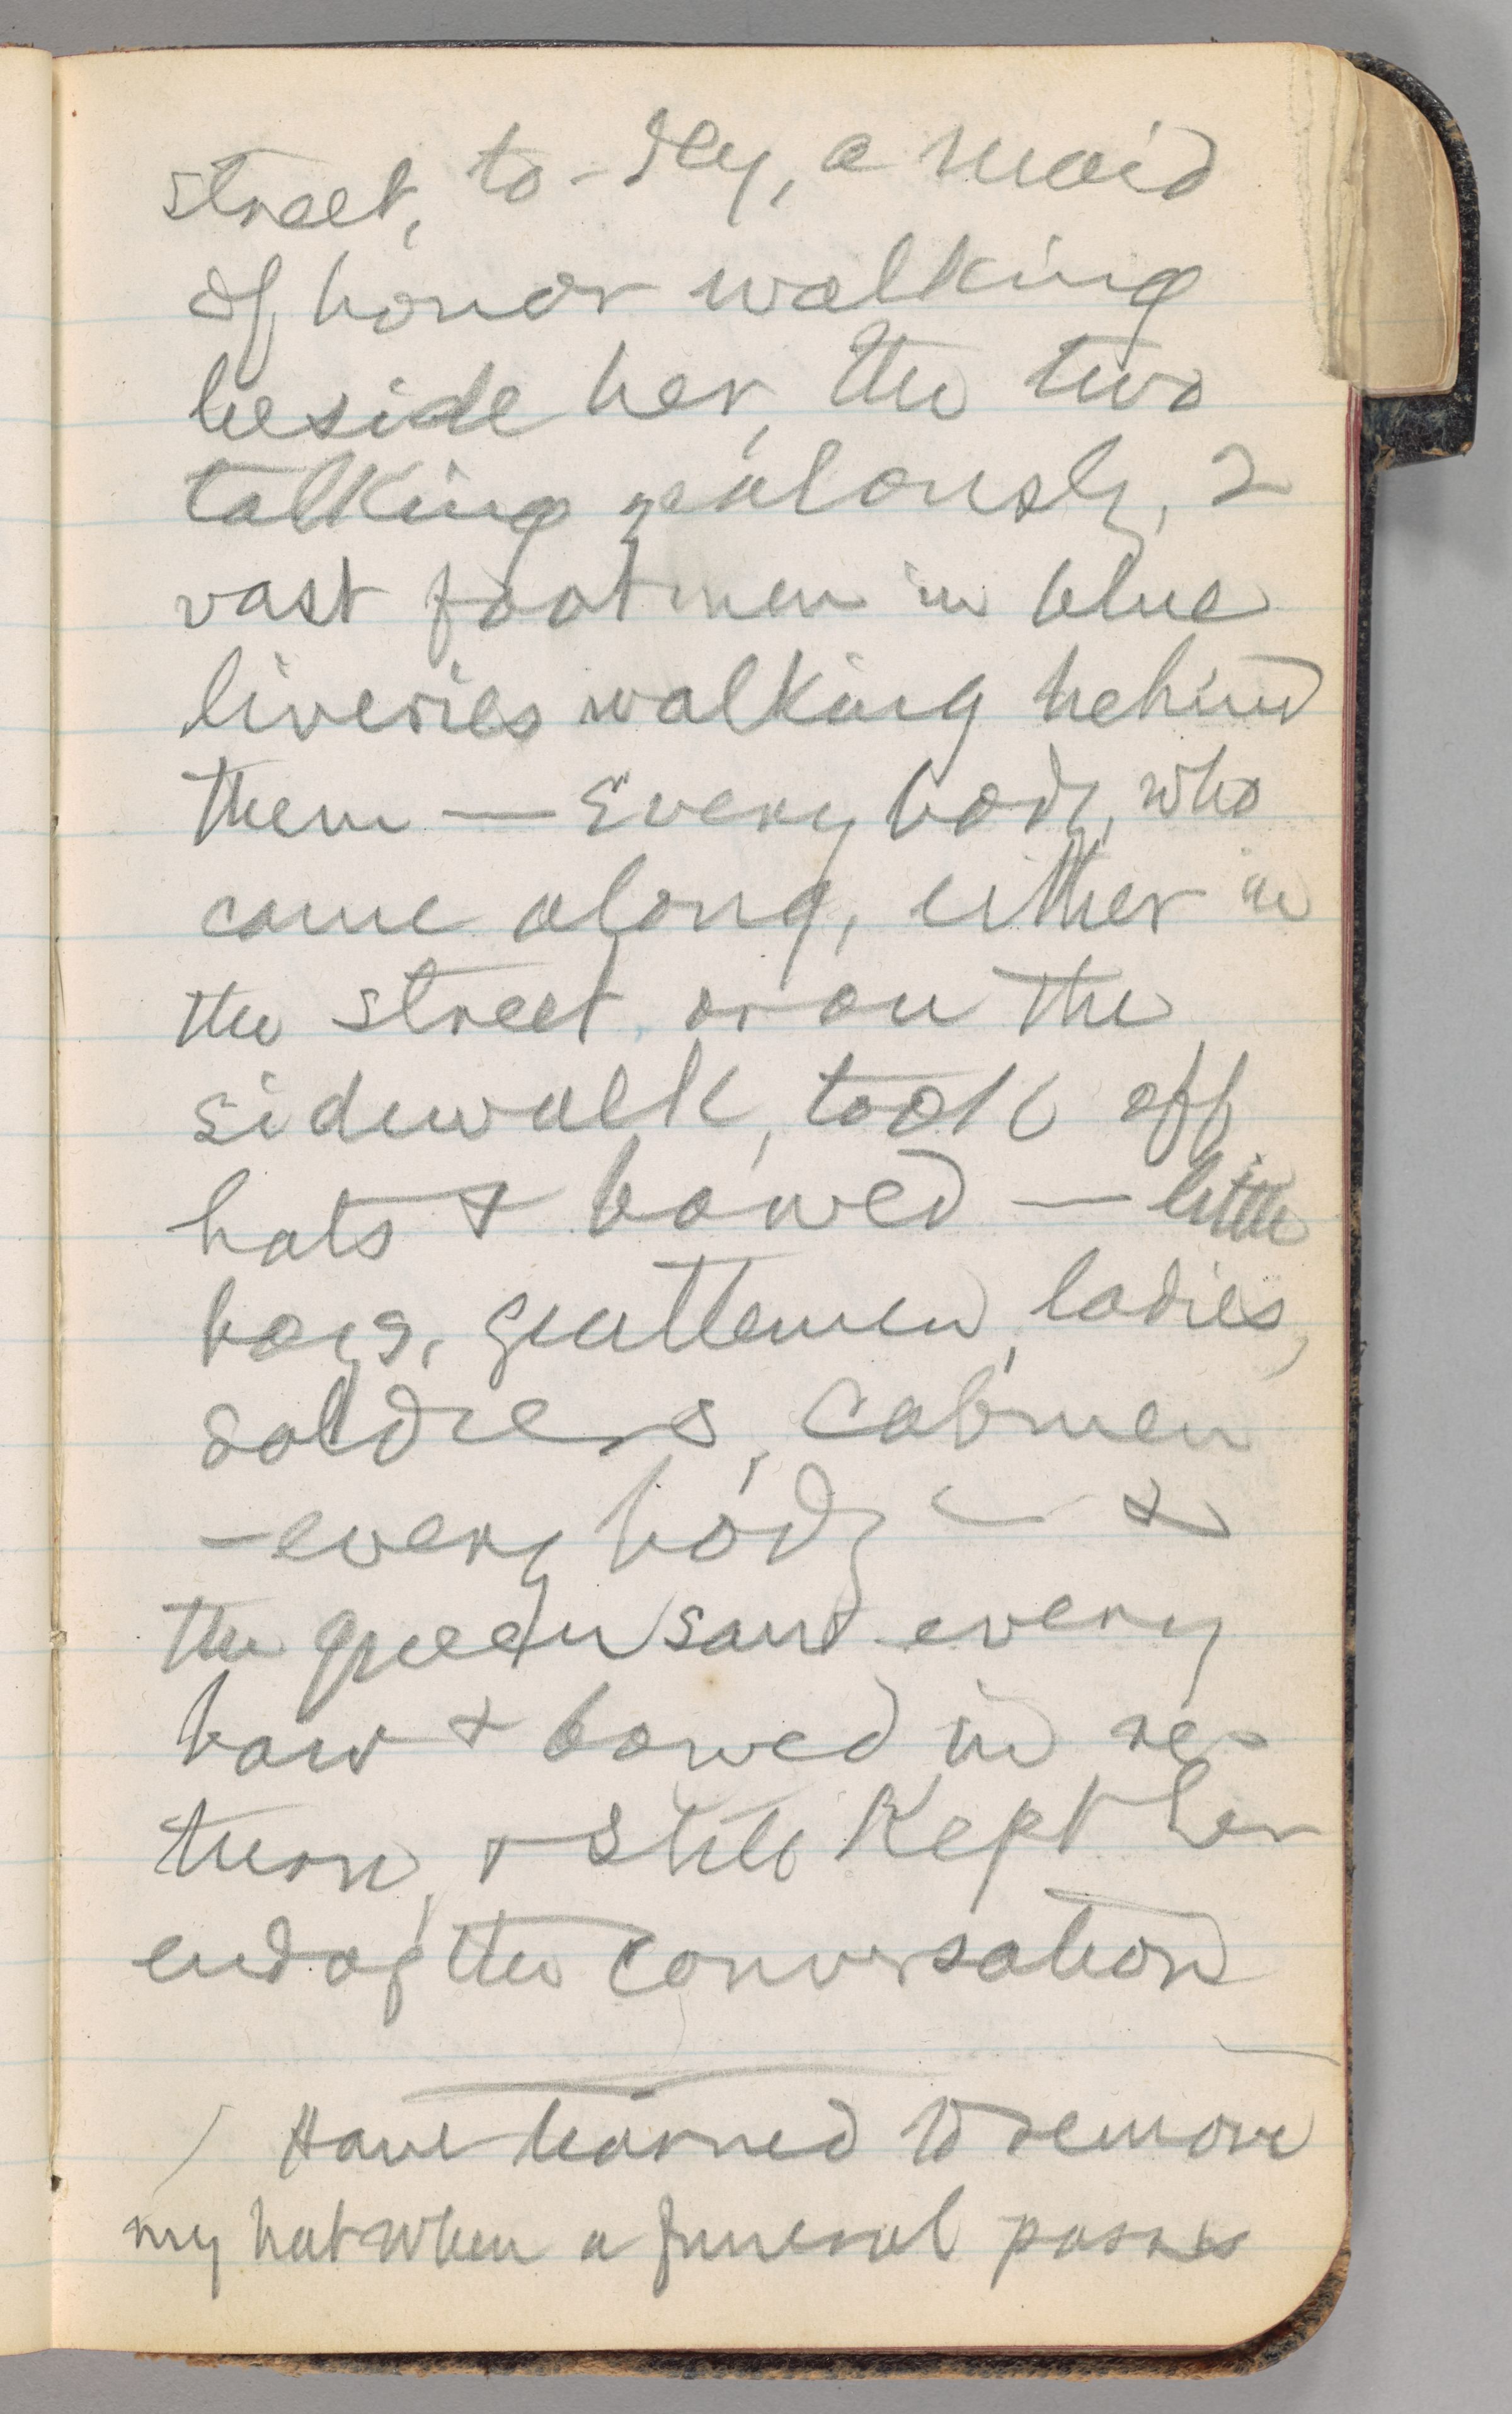 street, to-day, a maid
of honor walking
beside her, the two
talking zealously, 2
vast footmen in blue
liveries walking behind
them — Every body, who
came along, either in
the street, or on the
sidewalk, took off
hats & bowed — little
boys, gentlemen, ladies,
soldiers, cabmen
— every body — &
the queen saw every
bow & bowed in re-
turn, & still kept her
end of the conversation
Have learned to remove
my hat when a funeral passes